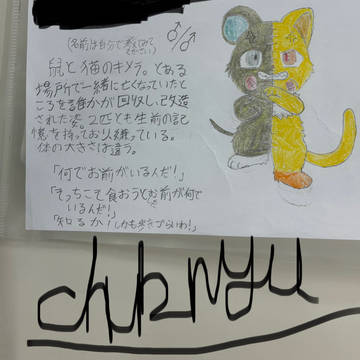 (名前は自分で考えてみて
ください)
♂/♂
鼠と猫のキメラ。とある
場所で一緒に亡くなっていたと
ころを誰かが回収し、改造
された姿。2匹とも生前の記
憶を持っており嫌っている。
体の大きさは違う。
「何でお前がいるんだ!」
「そっちこそ食おうとお前が何で
いるんだ!」
「知るか!しかも歩きづらいわ!」